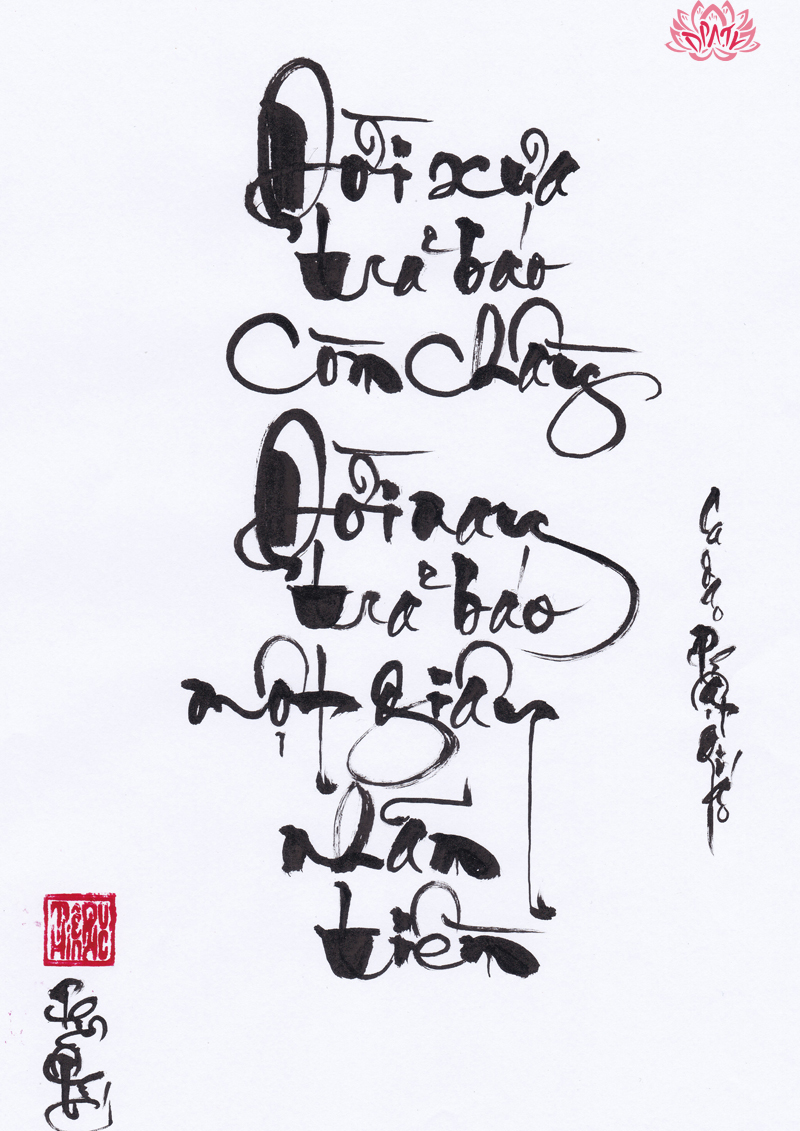 Đời xưa
trả báo
Còn chầy
Đời nay
trả báo
một giây
nhãn
tiền
Ca dao Phật giáo
DPATV